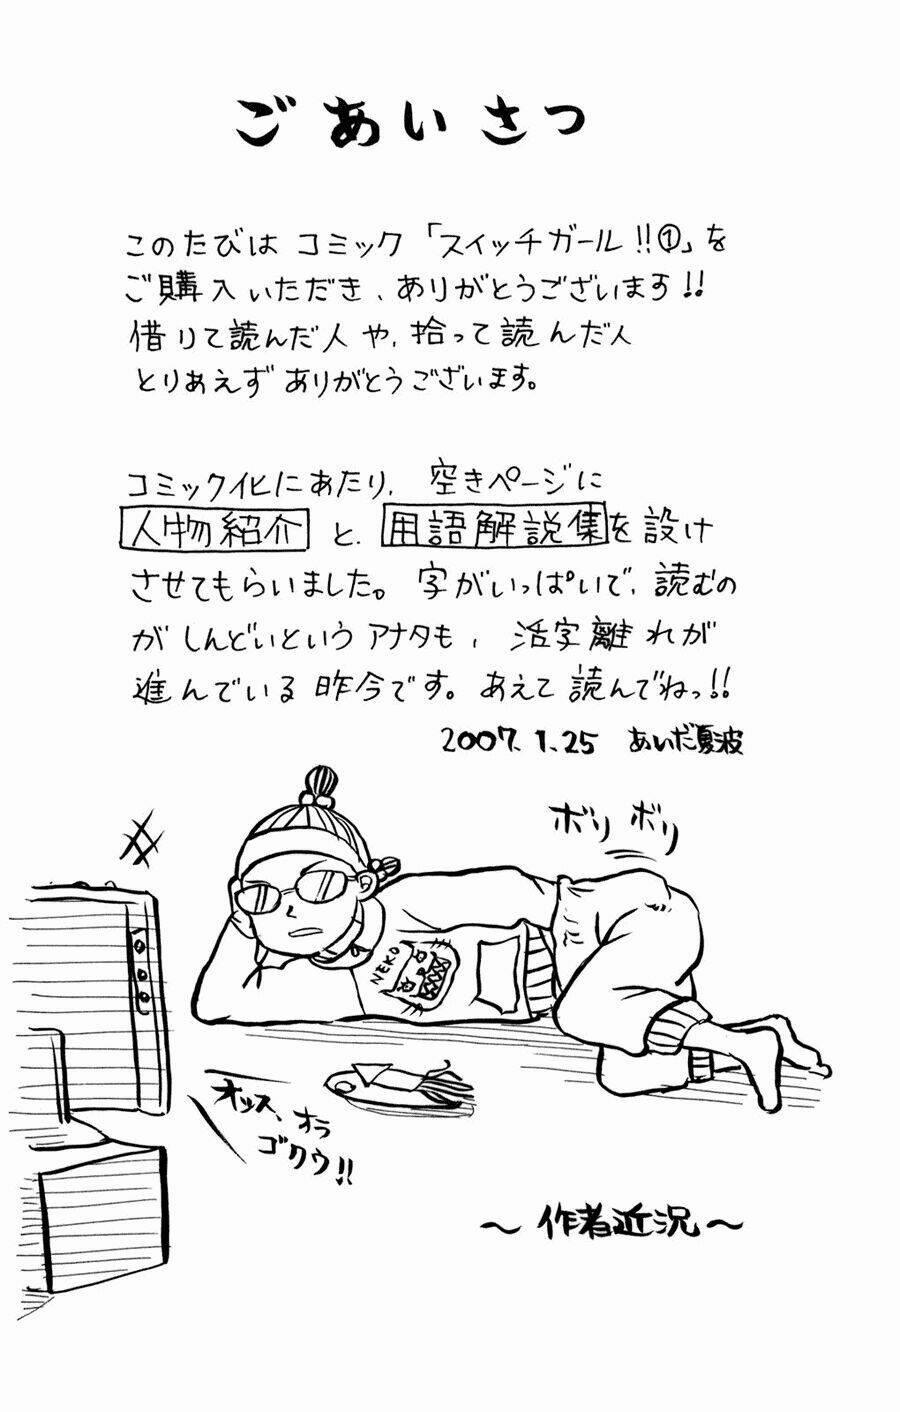 ごあいさつ
このたびは コミック「スイッチガール!!①」を
ご購入いただき、ありがとうございます!!
借りて読んだ人や、拾って読んだ人
とりあえず ありがとうございます。
コミック化にあたり、空きページに
人物紹介 と、用語解説集を設け
させてもらいました。字がいっぱいで、読むの
がしんどいというアナタも、活字離れが
進んでいる昨今です。あえて読んでねっ!!
2007.1.25 あいだ夏波
ボリ ボリ
NEKO
オッス、オラ
ゴクウ!!
〜作者近況〜